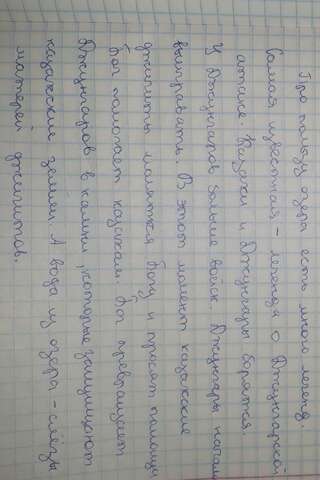 Про пользу озера есть много легенд.
Самая известная – легенда о Джунгарской
атаке. Казахи и Джунгары борятся.
У Джунгаров больше войск. Джунгары начали
выигравать. В этот момент казахские
джигиты малиться богу и просят помощи
Бог помогает казахам. Бог превращает
Джунгаров в камни, которые защищают
казахские земли. А вода из озера – слезы
матерей джигитов.